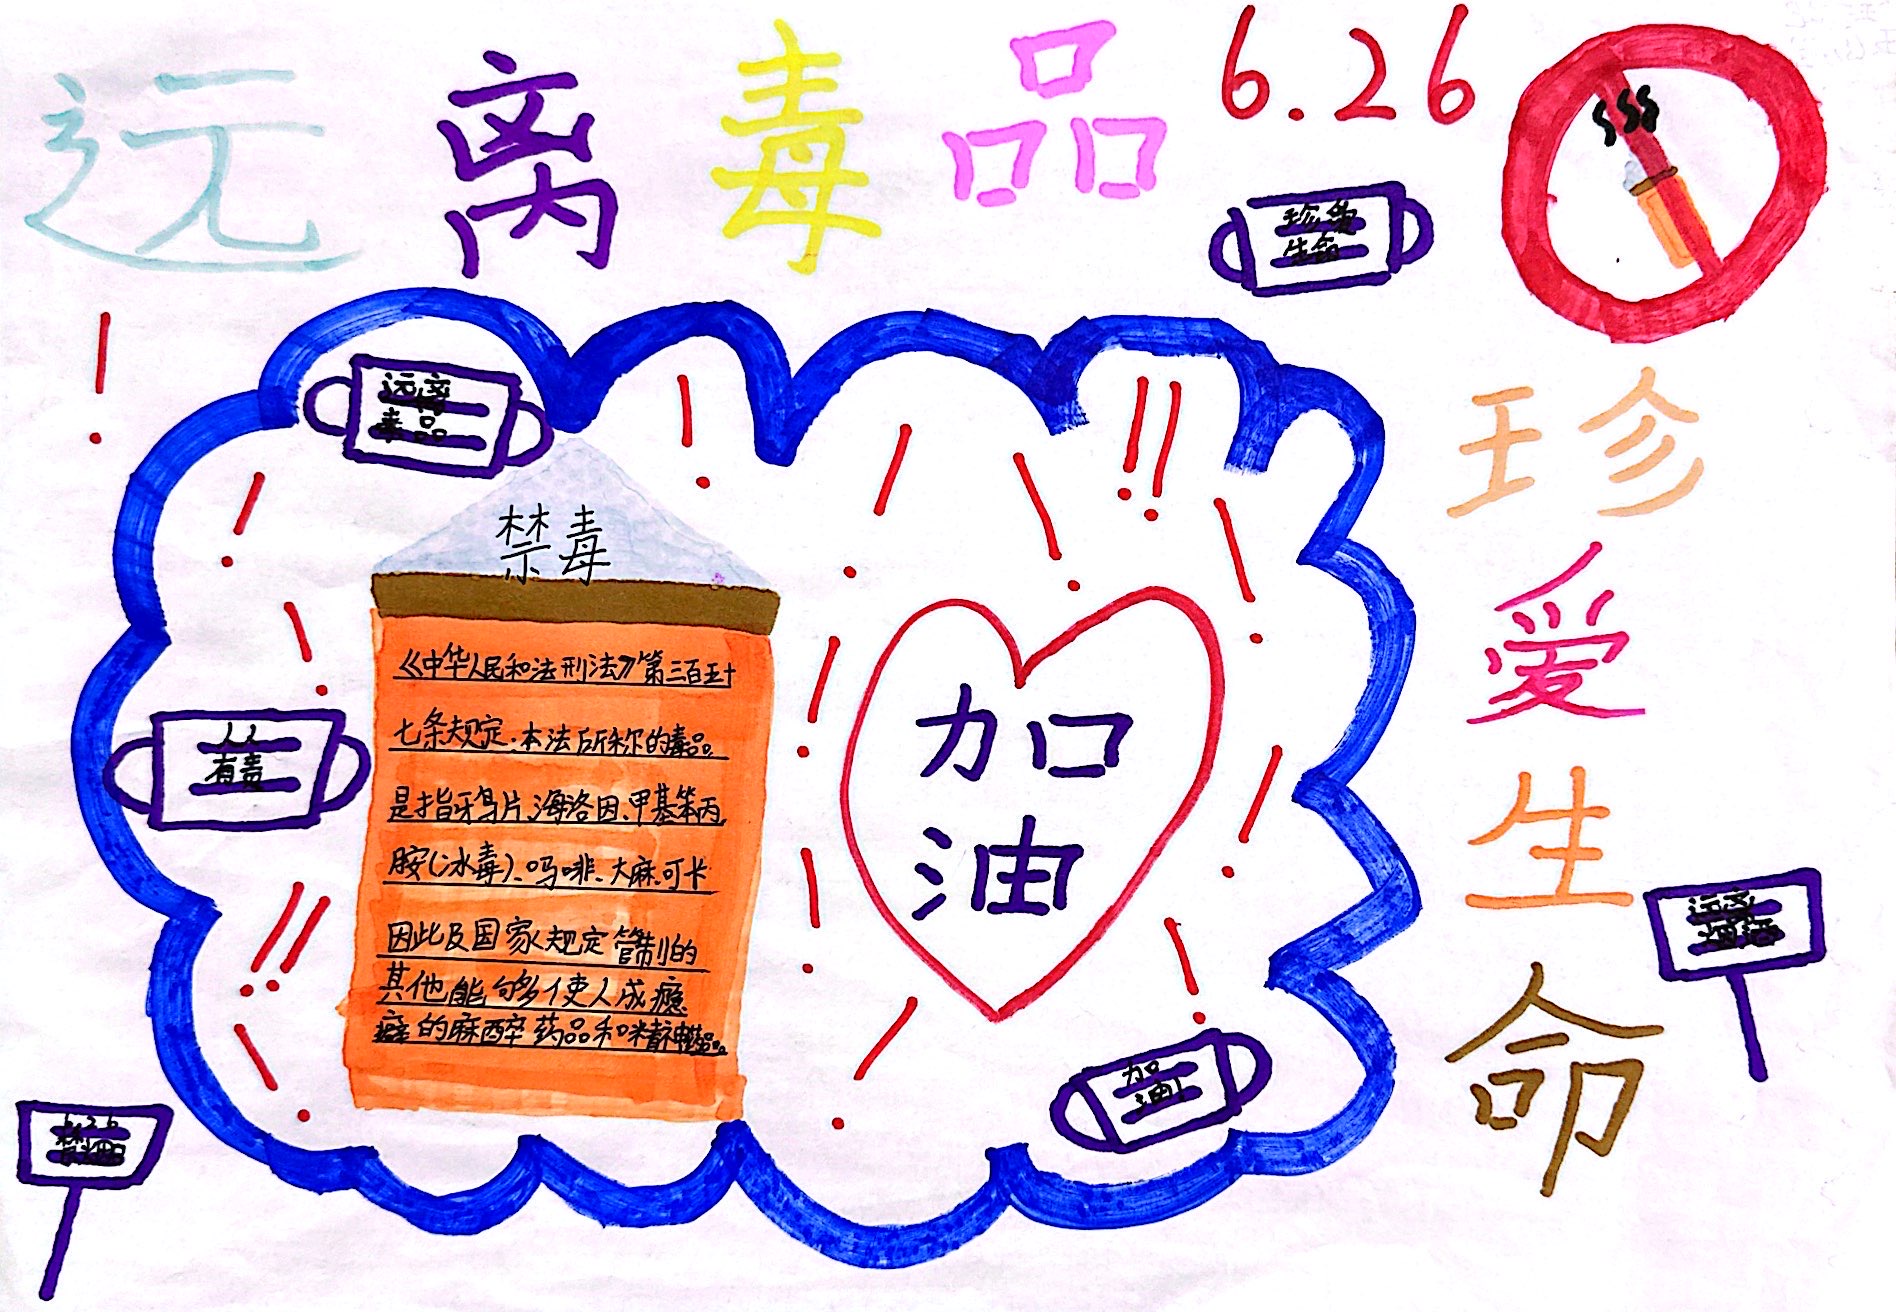 远离毒品
6.26
珍爱
生命
珍爱生命
远离
毒品
禁毒
《中华人民和法刑法》第三百五十
七条规定.本法所称的毒品。
是指牙鸟片、海洛因、甲基笨丙
胺(冰毒)、吗啡、大麻、可卡
因此及国家规定管制的
其他能够使人成瘾
癖的麻醉药品和
加
油
有毒
加
油